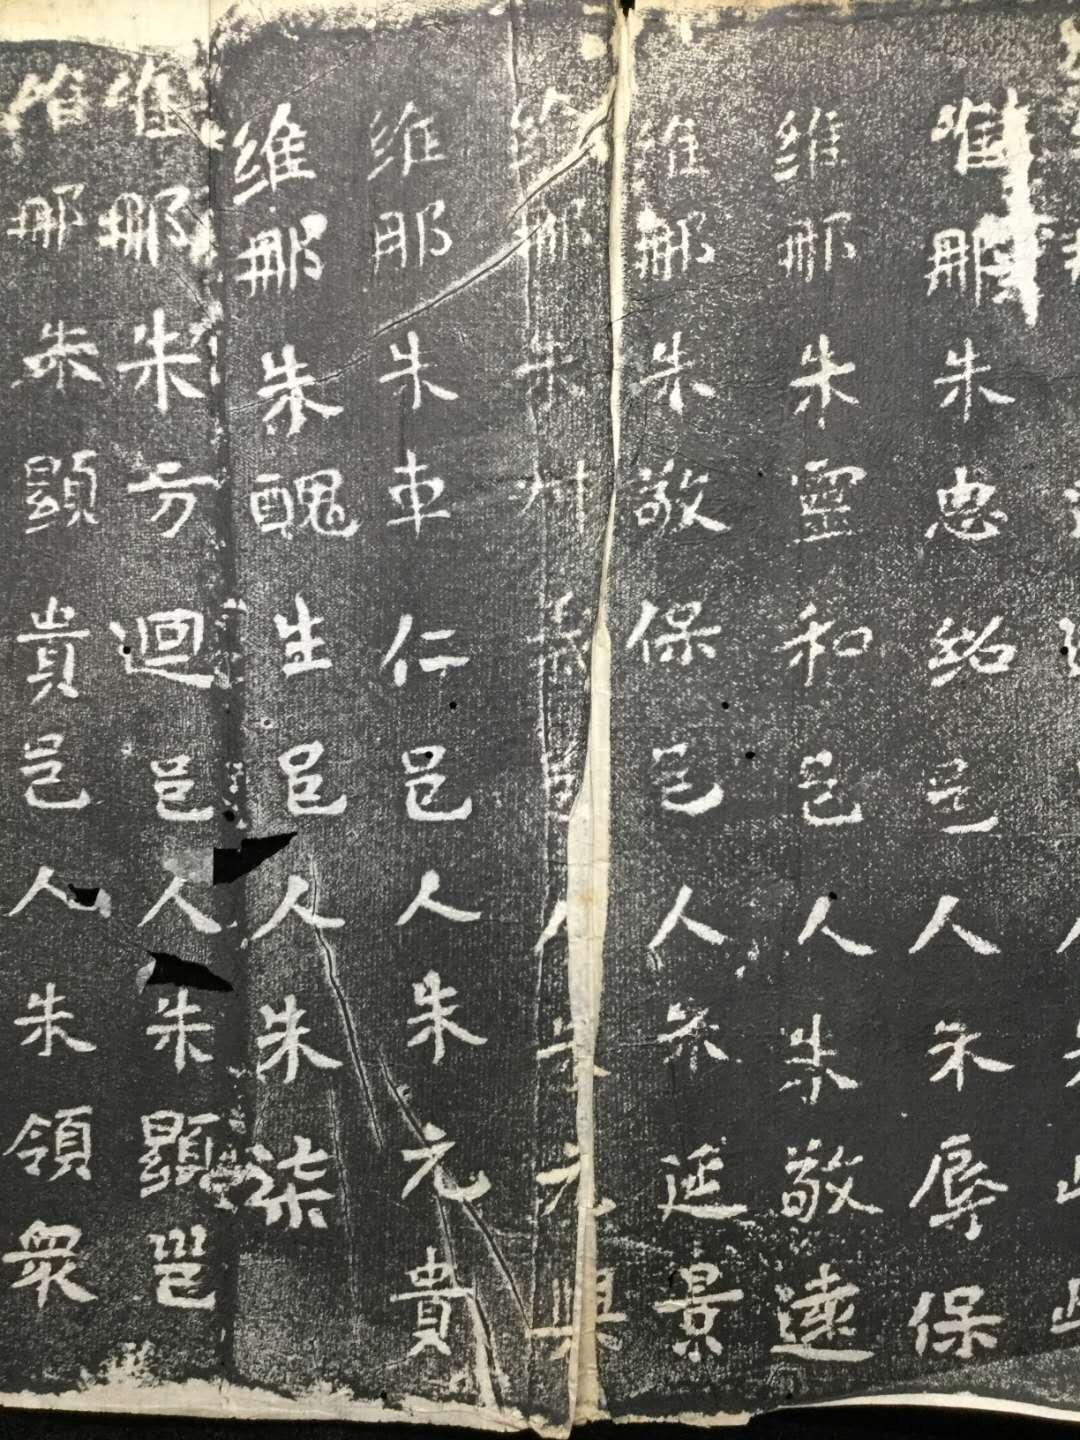 維那朱忠紹邑人朱辱保
維那朱靈和邑人朱敬遠
維那朱敬保邑人朱延景
維那朱邑人朱元興
維那朱車仁邑人朱元貴
維那朱醜生邑人朱柒
維那朱方迴邑人朱顯邕
維那朱顯貴邑人朱領眾